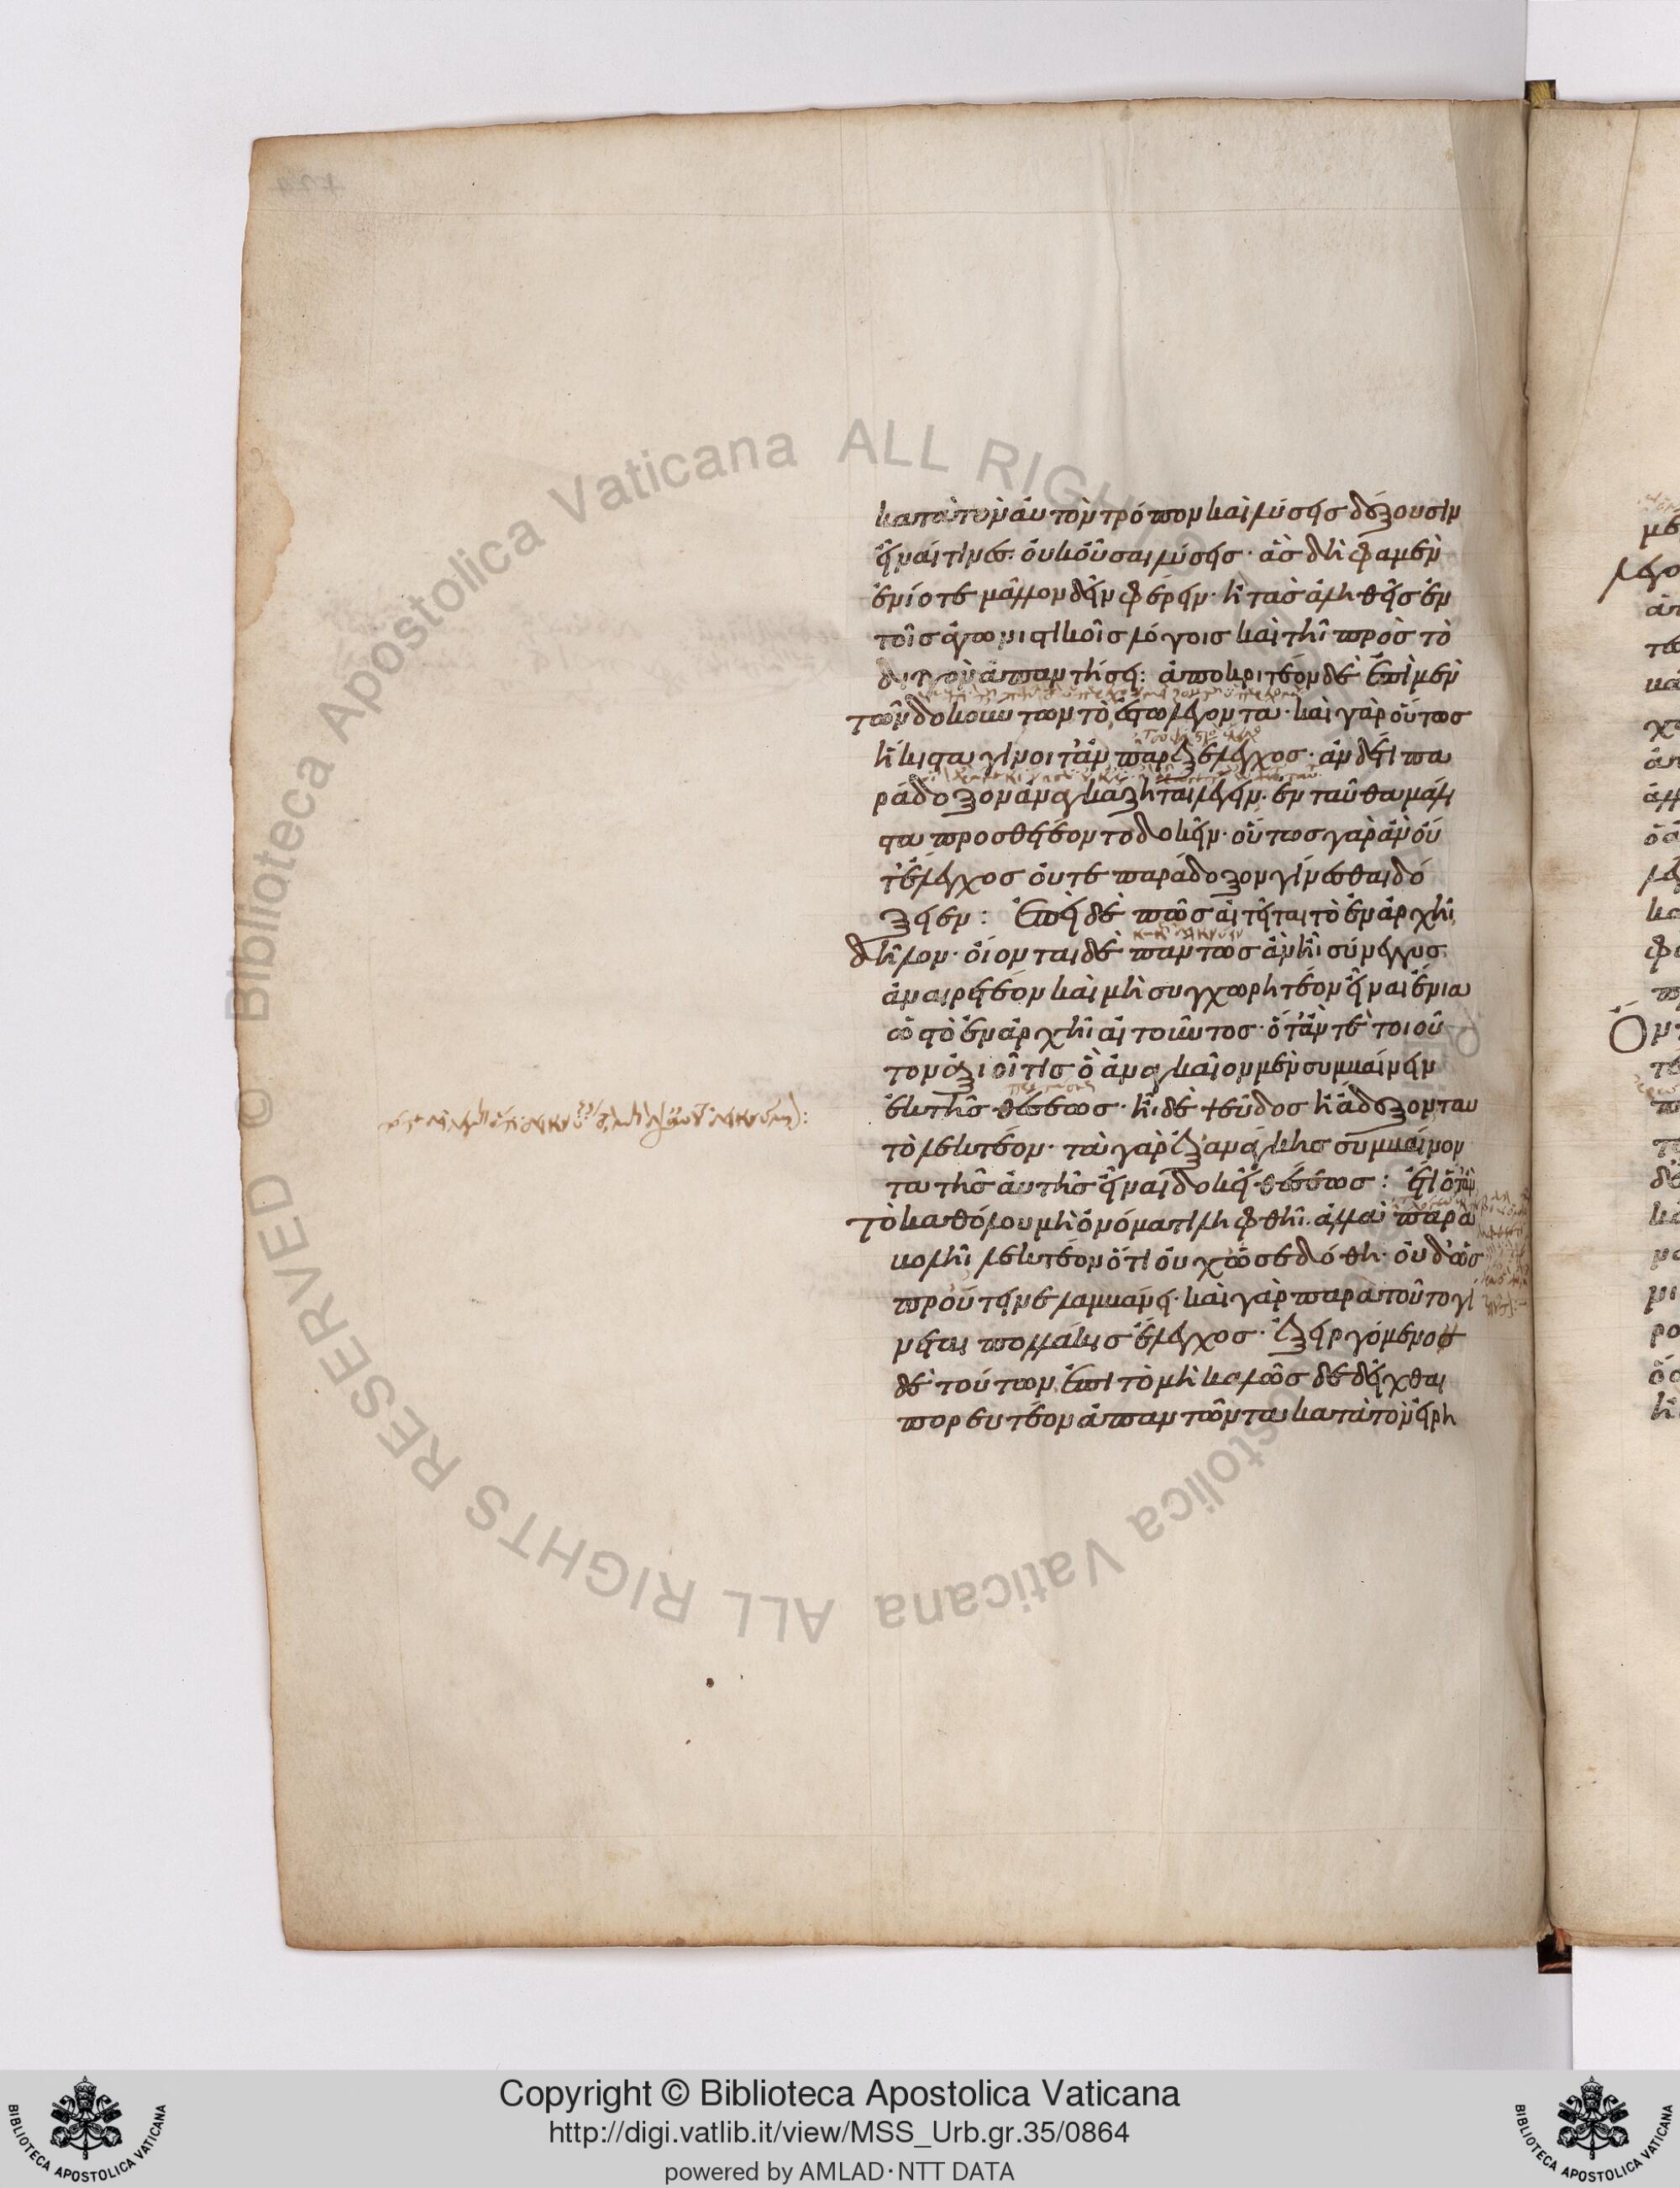 κατὰ τὸν αὐτὸν τρόπον καὶ λύσεις δόξουσιν
εἶναί τινες οὐκ οὖσαι λύσεις· ἃς δή φαμεν
ἐνίοτε μᾶλλον δεῖν φέρειν· ἢ τὰς ἀληθεῖς ἐν
τοῖς ἀγωνιστικοῖς λόγοις καὶ τῆι πρὸς τὸ
διττὸν ἀπαντήσει: ἀποκριτέον δὲ ἐπὶ μὲν
τῶν δοκούντων τὸ ἔστω λέγοντα· καὶ γὰρ οὕτως
ἥκιστα γίνοιτ' ἂν παρεξέλεγχος· ἂν δέ τι πα
ράδοξον ἀναγκάζηται λέγειν· ἐνταῦθα μάλι
στα προσθετέον τὸ δοκεῖν· οὕτως γὰρ ἂν οὔ
τ' ἔλεγχος οὔτε παράδοξον γίνεσθαι δό
ξειεν: ἐπεὶ δὲ πῶς αἰτεῖται τὸ ἐν ἀρχῆι
δῆλον· οἴονται δὲ πάντως ἂν ἦι σύνεγγυς
ἀναιρετέον καὶ μὴ συγχωρητέον εἶναι ἔνια
ὡς τὸ ἐν ἀρχῆι αἰτοῦντος· ὅτάν τε τοιοῦ
τον ἀξιοῖ τις ὃ ἀναγκαῖον μὲν συμβαίνειν
ἐκ τῆς θέσεως· ἦι δὲ ψεῦδος ἢ ἄδοξον ταυ
τὸ λεκτέον· τὰ γὰρ ἐξ ἀνάγκης συμβαίνον
τα τῆς αὐτῆς εἶναι δοκεῖ θέσεως: ἔτι ὅταν
τὸ καθόλου μὴ ὀνόματι ληφθῆι ἀλλὰ παρα
βολῆι λεκτέον ὅτι οὐχ ὡς ἐδόθη· οὐδ' ὡς
προύτεινε λαμβάνει· καὶ γὰρ παρὰ τοῦτο γί
νεται πολλάκις ἔλεγχος· ἐξειργόμενος
δὲ τούτων ἐπὶ τὸ μὴ καλῶς δεδεῖχθαι
πορευτέον ἀπαντῶντα κατὰ τὸν εἰρη
Copyright © Biblioteca Apostolica Vaticana
http://digi.vatlib.it/view/MSS_Urb.gr.35/0864
powered by AMLAD·NTT DATA